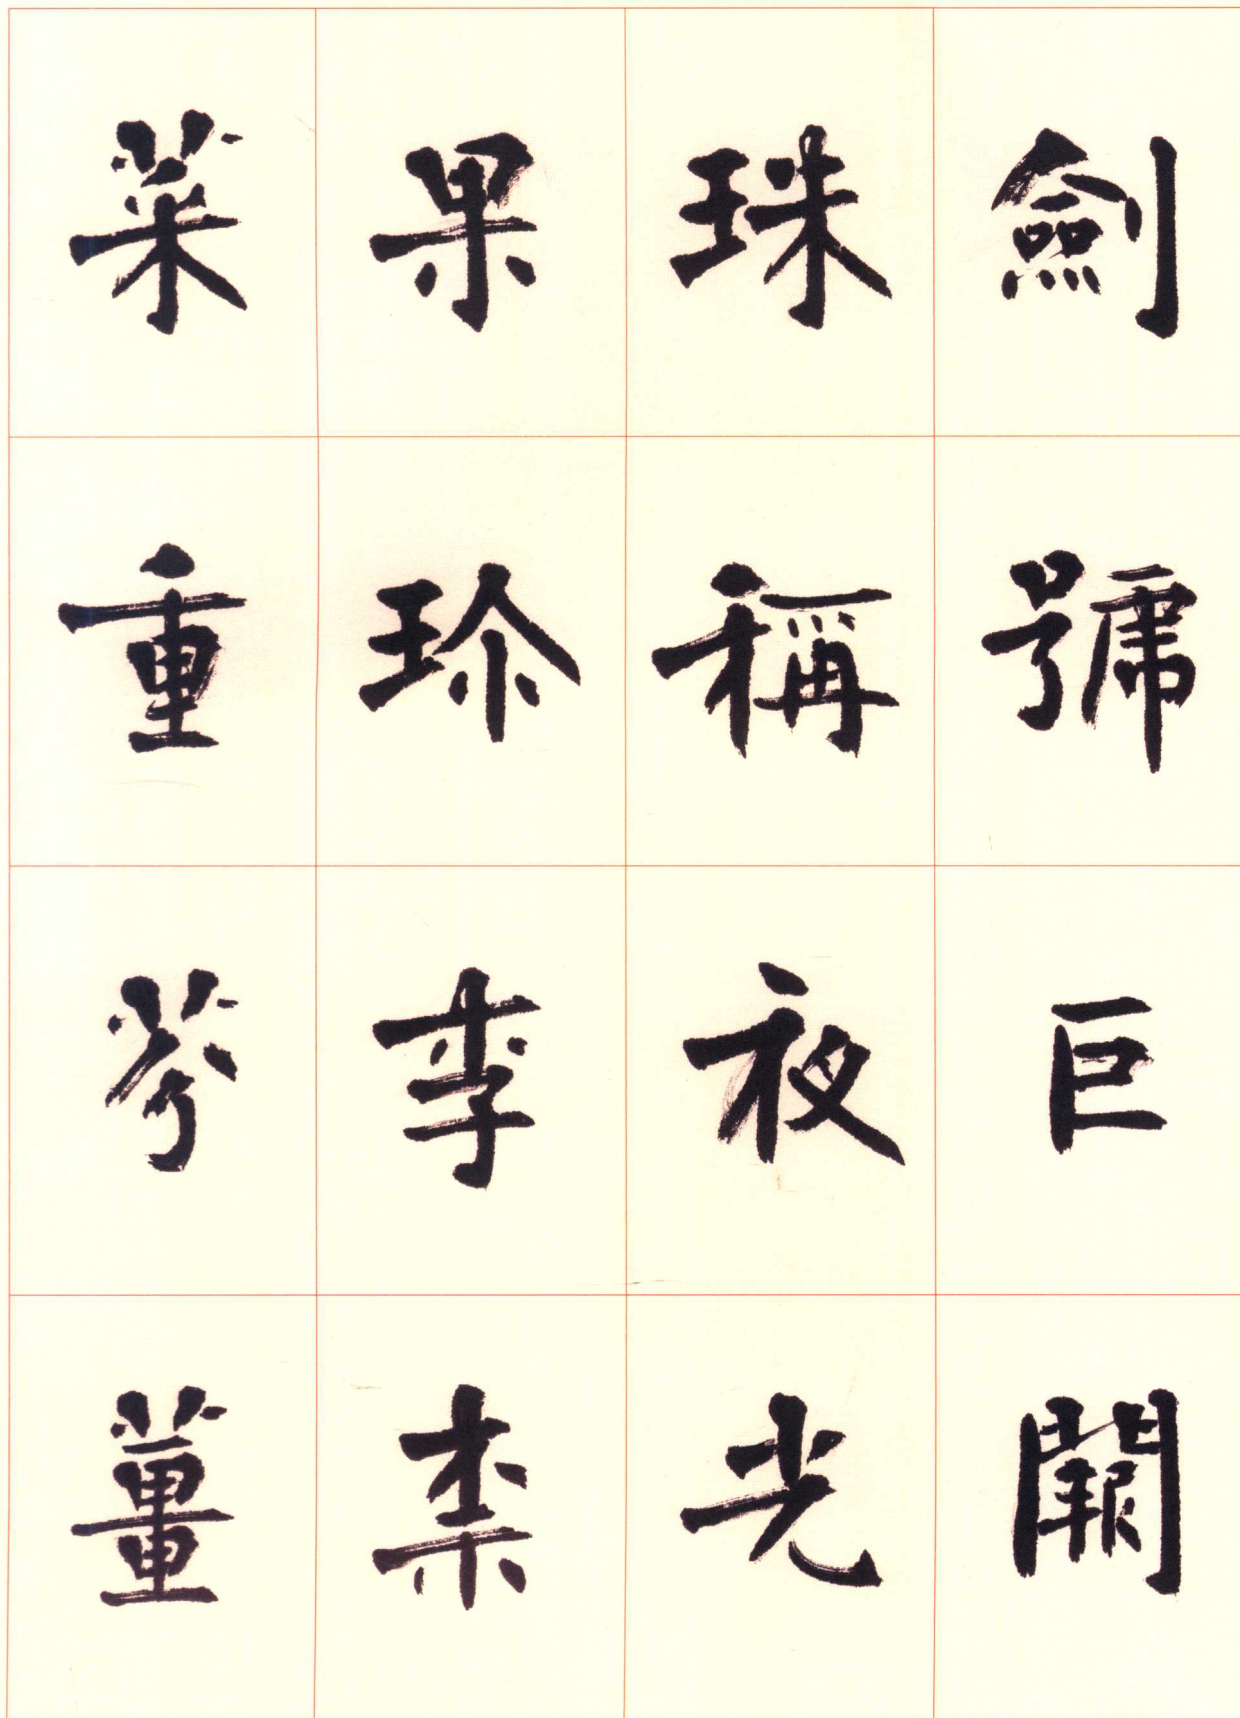 劍號巨闕
珠稱夜光
果珎李柰
菜重芥薑